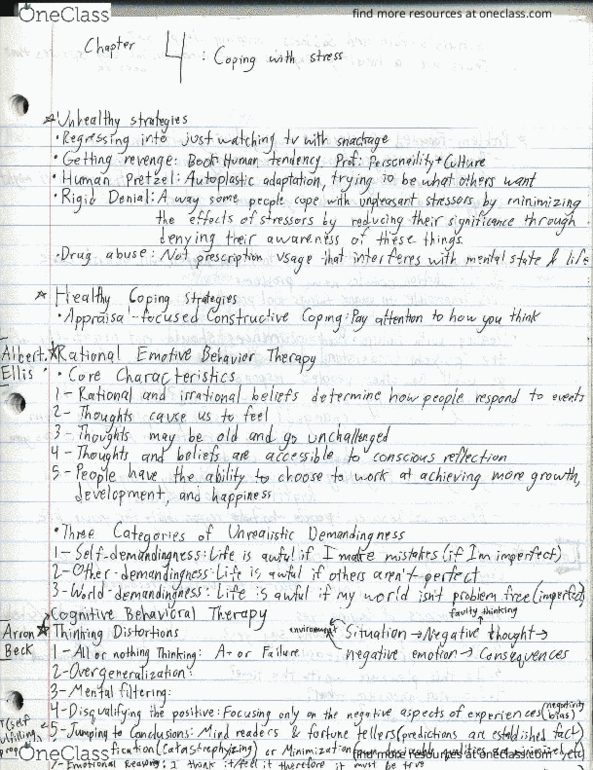 OneClass
find more resources at oneclass.com
Chapter 4: Coping with stress
☆Unhealthy strategies
• Regressing into just watching tv with snackage
• Getting revenge: Book: Human tendency. Prof: Personality + Culture
• Human Pretzel: Autoplastic adaptation, trying to be what others want
• Rigid Denial: A way some people cope with unpleasant stressors by minimizing
the effects of stressors by reducing their significance through
denying their awareness of these things.
• Drug abuse: Not prescription usage that interferes with mental state & life
☆ Healthy Coping strategies
• Appraisal-focused Constructive Coping: Pay attention to how you think
Albert Ellis
☆Rational Emotive Behavior Therapy
• Core Characteristics
1- Rational and irrational beliefs determine how people respond to events
2- Thoughts cause us to feel
3- Thoughts may be old and go unchallenged
4- Thoughts and beliefs are accessible to conscious reflection
5- People have the ability to choose to work at achieving more growth,
development, and happiness
• Three Categories of Unrealistic Demandingness
1- Self-demandingness: Life is awful if I make mistakes (if I'm imperfect)
2- Other-demandingness: Life is awful if others aren't perfect
3- World-demandingness: Life is awful if my world isn't problem free (imperfect)
Cognitive Behavioral Therapy
faulty thinking
Arron Beck
☆ Thinking Distortions
environment
Situation → Negative thought →
negative emotion → Consequences
1- All or nothing Thinking: A+ or Failure
2- Overgeneralization:
3- Mental filtering:
4- Disqualifying the positive: Focusing only on the negative aspects of experiences (negativity bias)
5- Jumping to Conclusions: Mind readers & fortune tellers (predictions are established fact)
(self
fulfilling
(Catastrophyizing) or Minimization
OneClass
find more resources at oneclass.com
7- Emotional Reasoning: I think it/feel it therefore it must be true